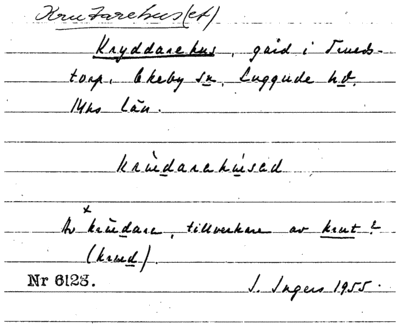 Krutarehus(et)
Kryddarehus, gård i Tureds-
torp, Ekeby sn, Luggude hd,
Mhs län.
krúdarehúsed
Av *krúdare, tillverkare av krut?
(krud).
Nr 6123.
I. Ingers 1955.